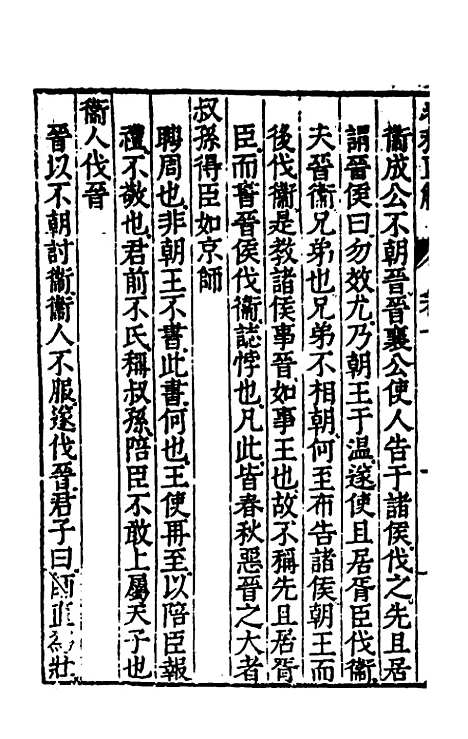 衞成公不朝晉晉襄公使人告于諸侯伐之先且居
謂晉侯曰勿效尤乃朝王于温遂使且居胥臣伐衞
夫晉衞兄弟也兄弟不相朝何至布告諸侯朝王而
後伐衞是教諸侯事晉如事王也故不稱先且居胥
臣而書晉侯伐衞誌悖也凡此皆春秋惡晉之大者
叔孫得臣如京師
聘周也非朝王不書此書何也王使再至以陪臣報
禮不敬也君前不氏稱叔孫陪臣不敢上屬天子也
衞人伐晉
晉以不朝討衞衞人不服遂伐晉君子曰師直為壯